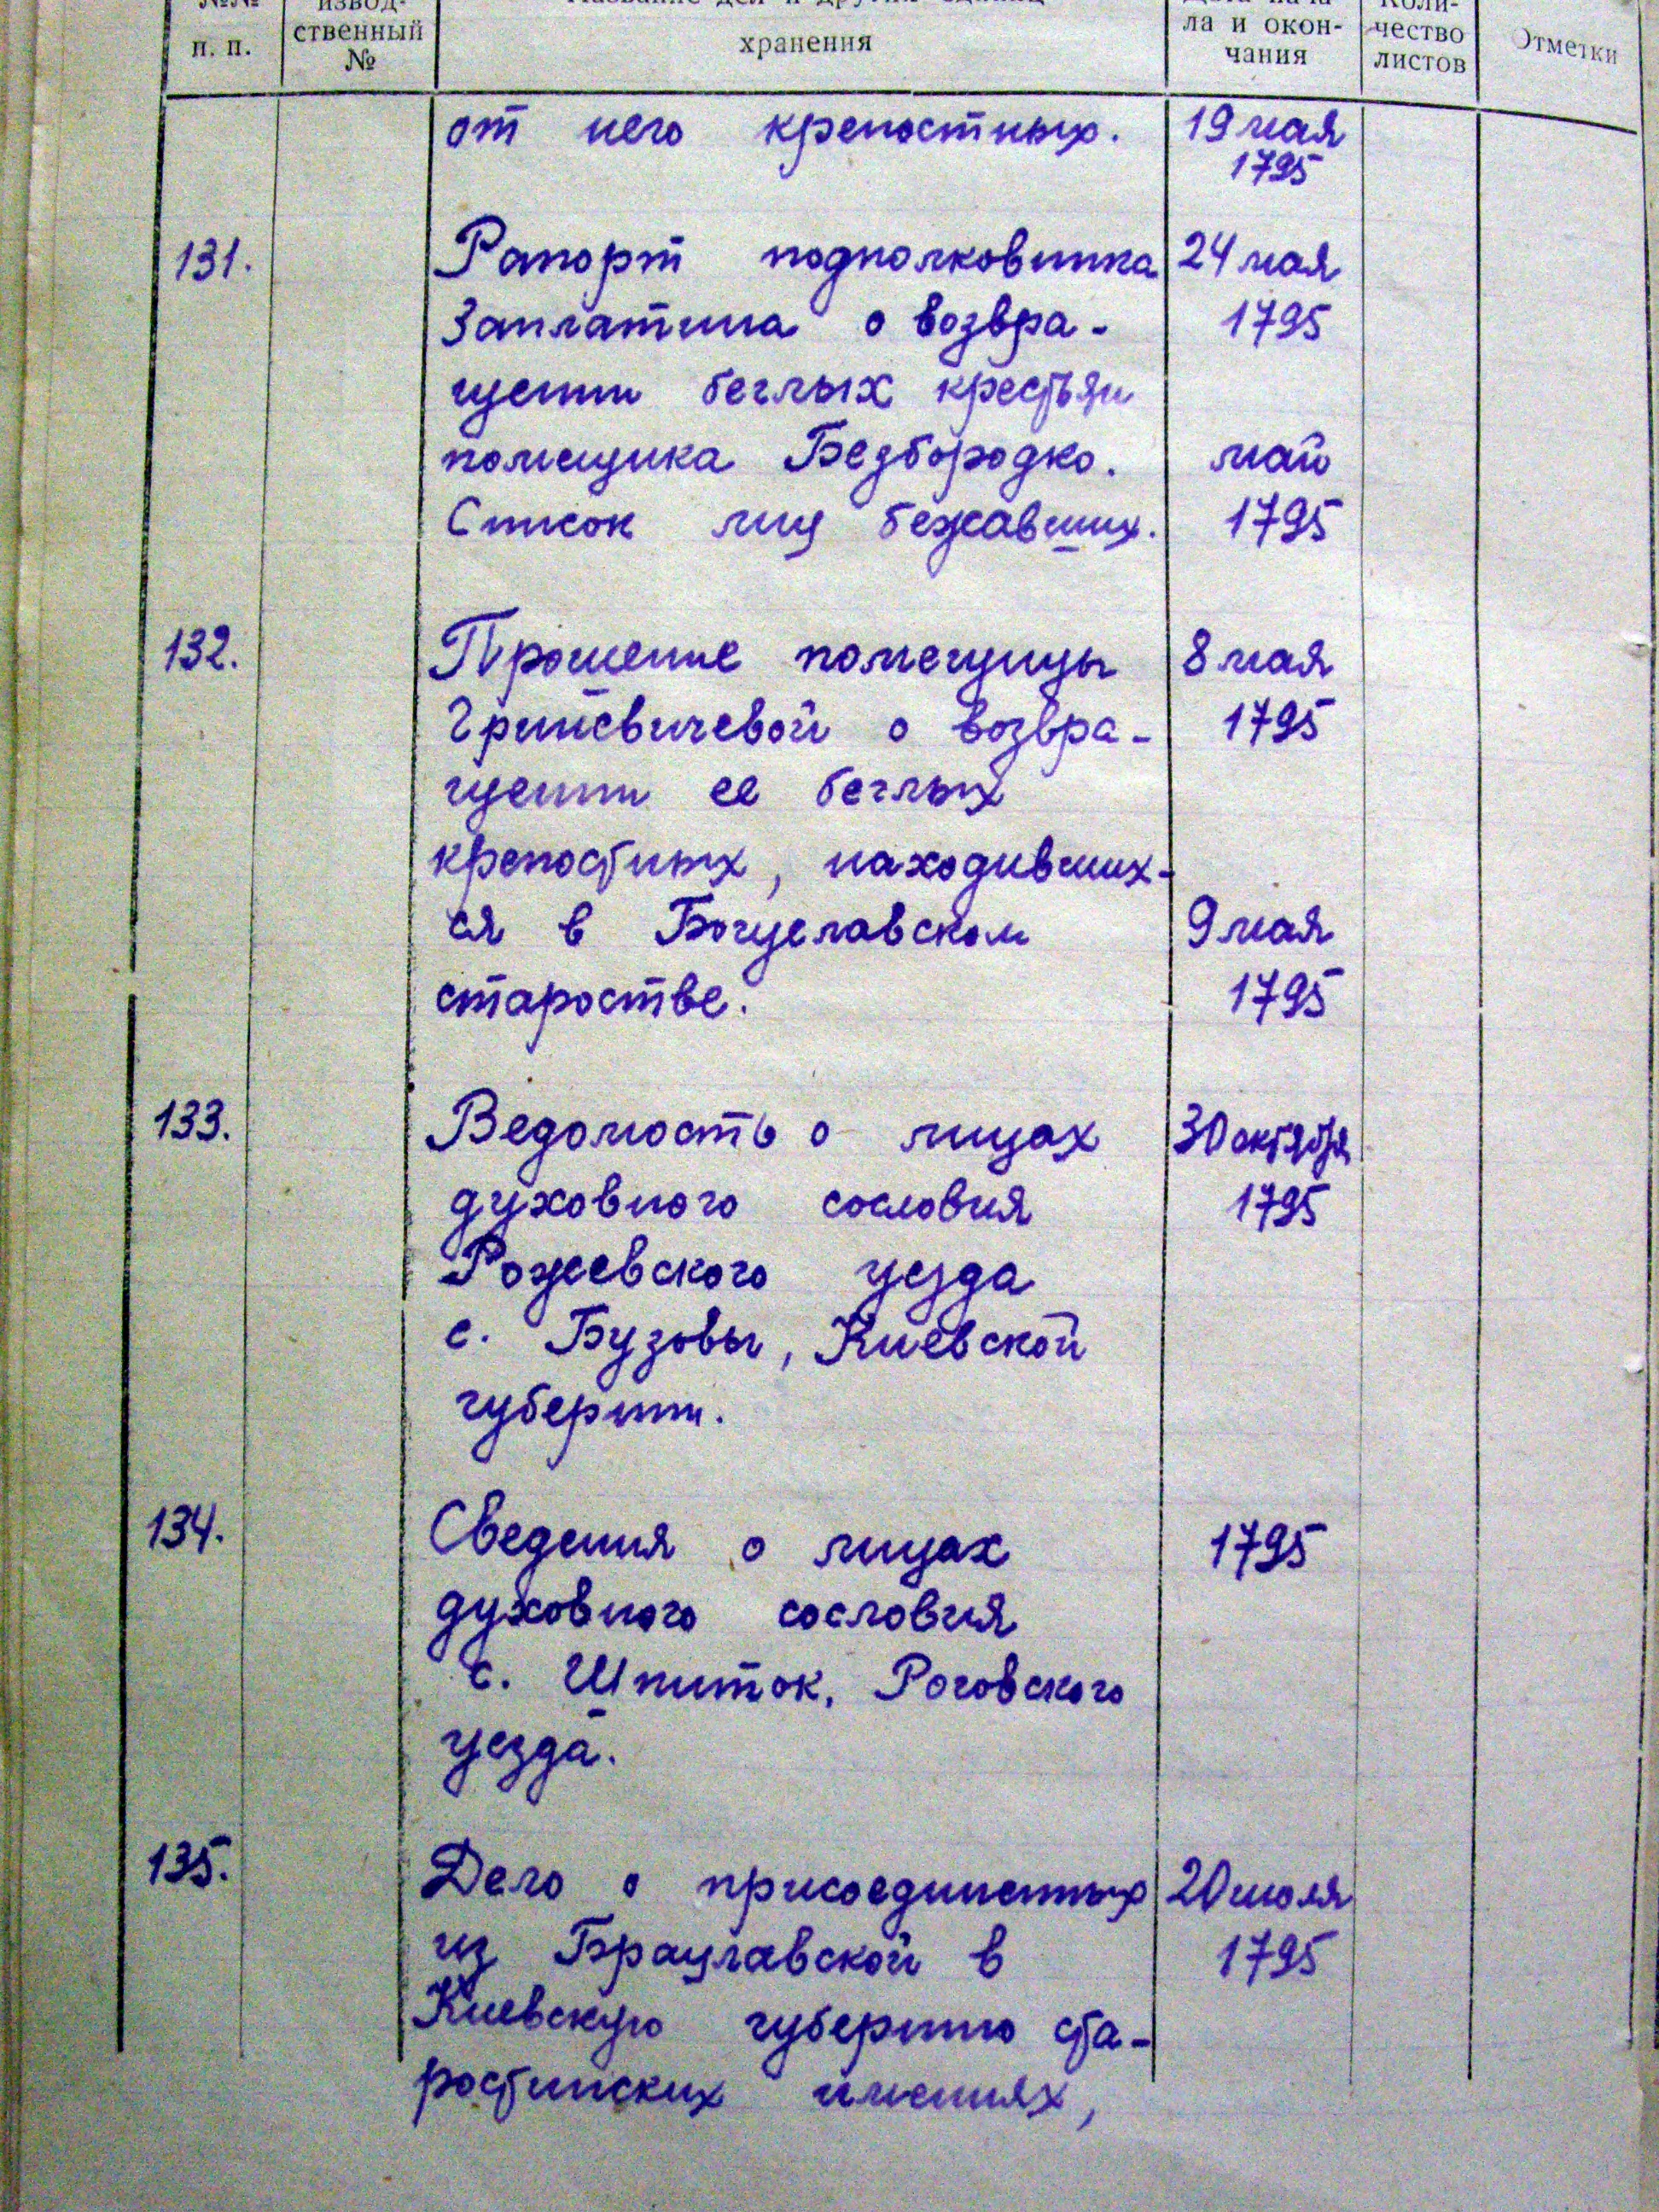 №№ извод- Название дел и других единиц Дата нача- Коли-
п. п. ственный хранения ла и окон- чество Отметки
№ чания листов
от него крепостных. 19 мая
1795
131. Рапорт подполковника 24 мая
Заплатина о возвра- 1795
щении беглых крестьян
помещика Безбородко. май
Список лиц бежавших. 1795
132. Прошение помещицы 8 мая
Гриневичевой о возвра- 1795
щении ее беглых
крепостных, находивших-
ся в Богуславском 9 мая
старостве. 1795
133. Ведомость о лицах 30 октября
духовного сословия 1795
Рожевского уезда
с. Бузовы, Киевской
губернии.
134. Сведения о лицах 1795
духовного сословия
с. Шпиток, Роговского
уезда.
135. Дело о присоединенных 20 июля
из Брацлавской в 1795
Киевскую губернию ста-
ростинских имениях,